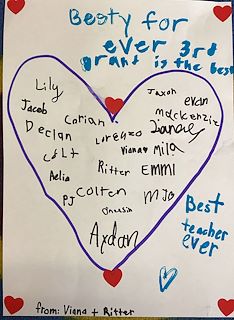 Besty for
ever 3rd
grant is the best
Lily
Jaxon
evan
Jacob
Corian
mackenzie
Declan
Lorenzo
Colt
Viana
Mila
Aelia
Ritter
EMMI
PJ
Colten
MJO
Axdan
Best
teacher
ever
from: Viana + Ritter